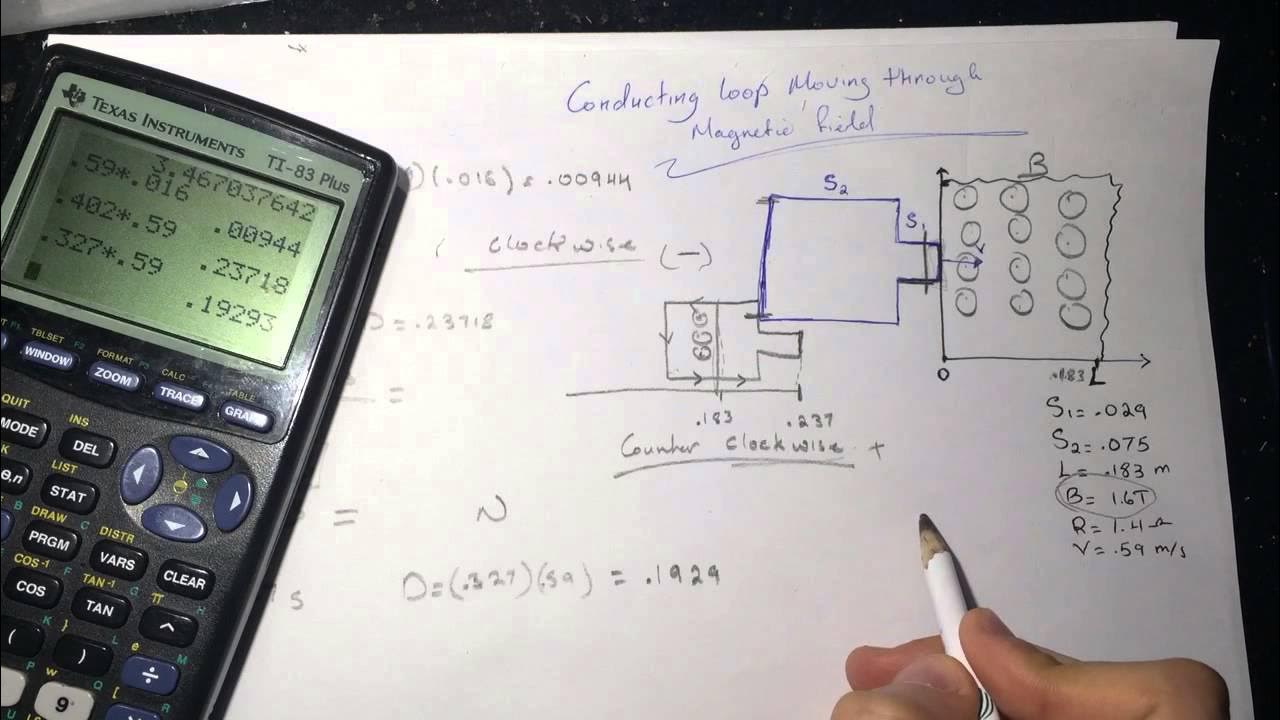 Conducting loop Moving through
Magnetic field
)(.016) = .00944
clockwise (-)
D = .23718
=
= N
s
D=(.327)(.59) = .1929
S2
S1
B
0
.183 L
.183 .237
Counter clockwise +
S1 = .029
S2 = .075
L = .183 m
B = 1.6T
R = 1.4 Ω
V = .59 m/s
TEXAS INSTRUMENTS TI-83 Plus
3.467037642
.59*.016
.00944
.402*.59
.23718
.327*.59
.19293
TBLSET F2 FORMAT F3 CALC F4 TABLE
WINDOW ZOOM TRACE GRAPH
QUIT INS
MODE DEL
LINK LIST
θ,n STAT
DRAW C DISTR
PRGM VARS CLEAR
COS-1 F TAN-1 G π H
COS TAN ^
K { L } M e
( ) ÷
P w Q [ R
9